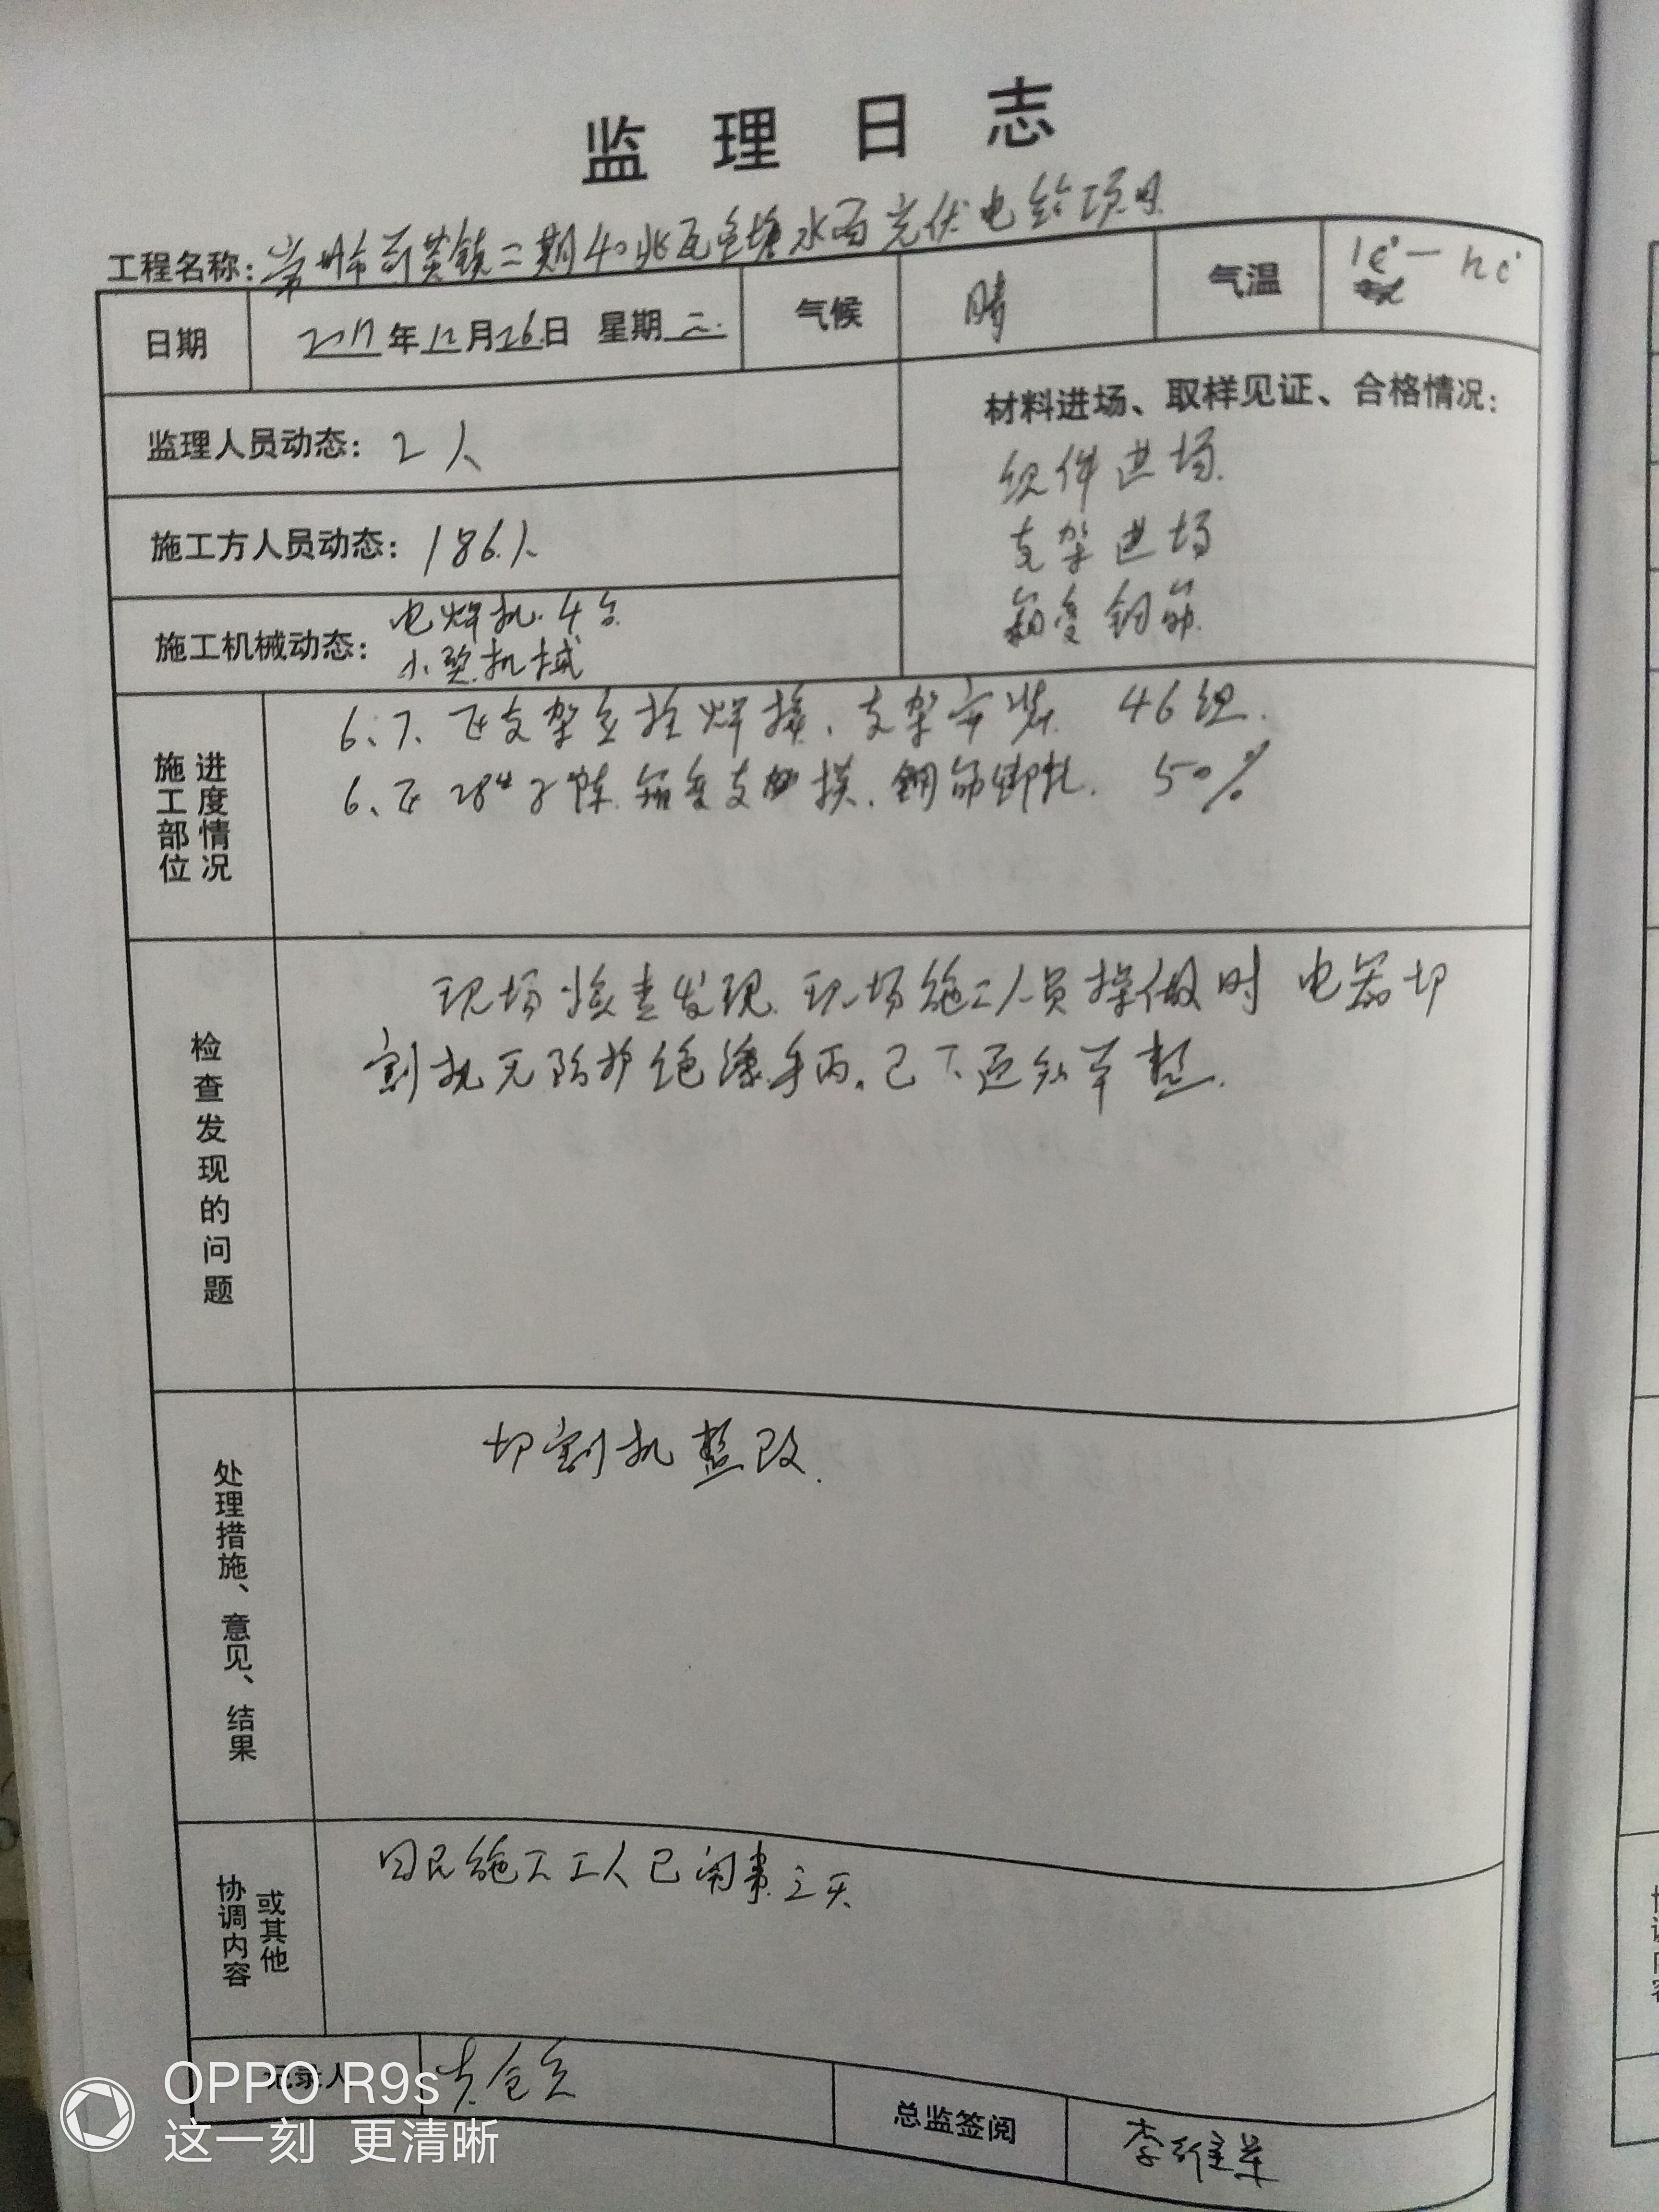 监理日志
工程名称: 常州市 镇二期40兆瓦鱼塘水面光伏电站项目
日期 2017年12月26日 星期二. 气候 晴 气温
监理人员动态: 2人
材料进场、取样见证、合格情况:
组件进场.
支架进场
箱变钢筋.
施工方人员动态: 186人
施工机械动态: 电焊机.4台
小型机械
施工部位 进度情况
6、7、 区支架立柱焊接、支架安装. 46组.
6、 区 28# 子阵.箱变支 模、钢筋绑扎. 50%
检查发现的问题
现场检查发现.现场施工人员操做时 电器切
割机无防护绝缘手丙。已下 整.
处理措施、意见、结果
切割机整改.
协调内容 或其他
施工工人已闹事三天
记录人
总监签阅 李
OPPO R9s
这一刻 更清晰